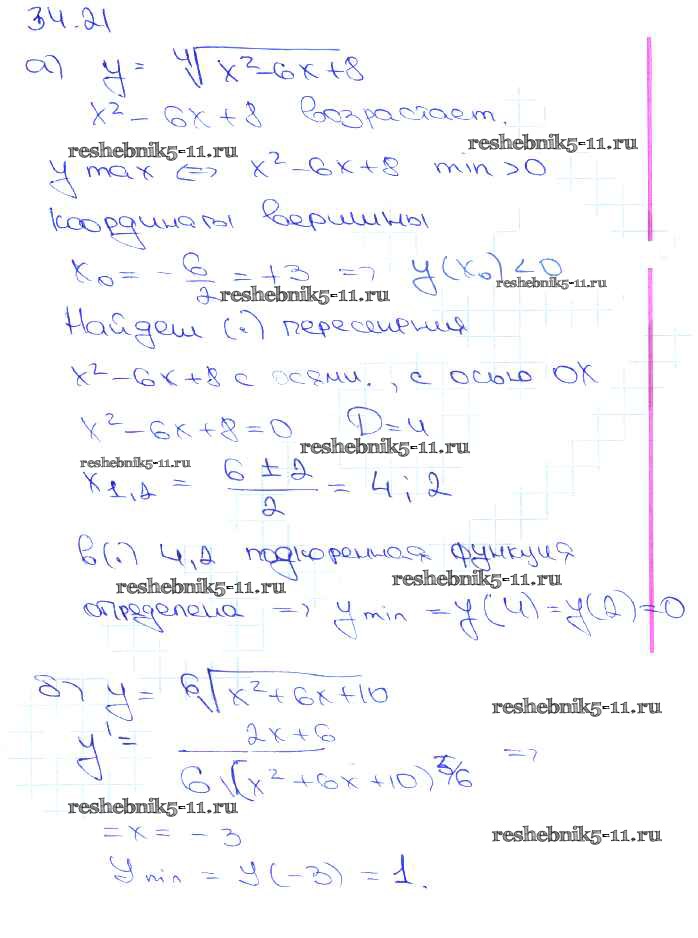 34.21
а) y = ∜(x²-6x+8)
x² - 6x + 8 возрастает.
reshebnik5-11.ru
reshebnik5-11.ru
y max ⇔ x² - 6x + 8 min > 0
координаты вершины
x₀ = - 6/2 = +3 => y(x₀) < 0
reshebnik5-11.ru
reshebnik5-11.ru
Найдем (.) пересечения
x² - 6x + 8 с осями., с осью OX
x² - 6x + 8 = 0 D = 4
reshebnik5-11.ru
reshebnik5-11.ru
x₁,₂ = (6 ± 2)/2 = 4; 2
в(.) 4,2 подкоренная функция
reshebnik5-11.ru
reshebnik5-11.ru
определена => y min = y(4) = y(2) = 0
б) y = ⁶√(x² + 6x + 10)
reshebnik5-11.ru
y' = (2x + 6)/(6 (x² + 6x + 10)^5/6) =>
reshebnik5-11.ru
reshebnik5-11.ru
= x = - 3
y min = y(-3) = 1.